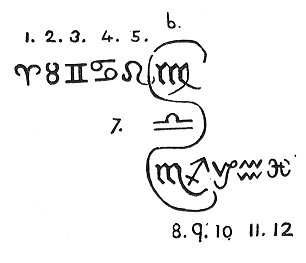 6.
1. 2. 3. 4. 5.
♈ ♉ ♊ ♋ ♌ ♍
7. ♎
♏ ♐ ♑ ♒ ♓
8. 9. 10 11. 12